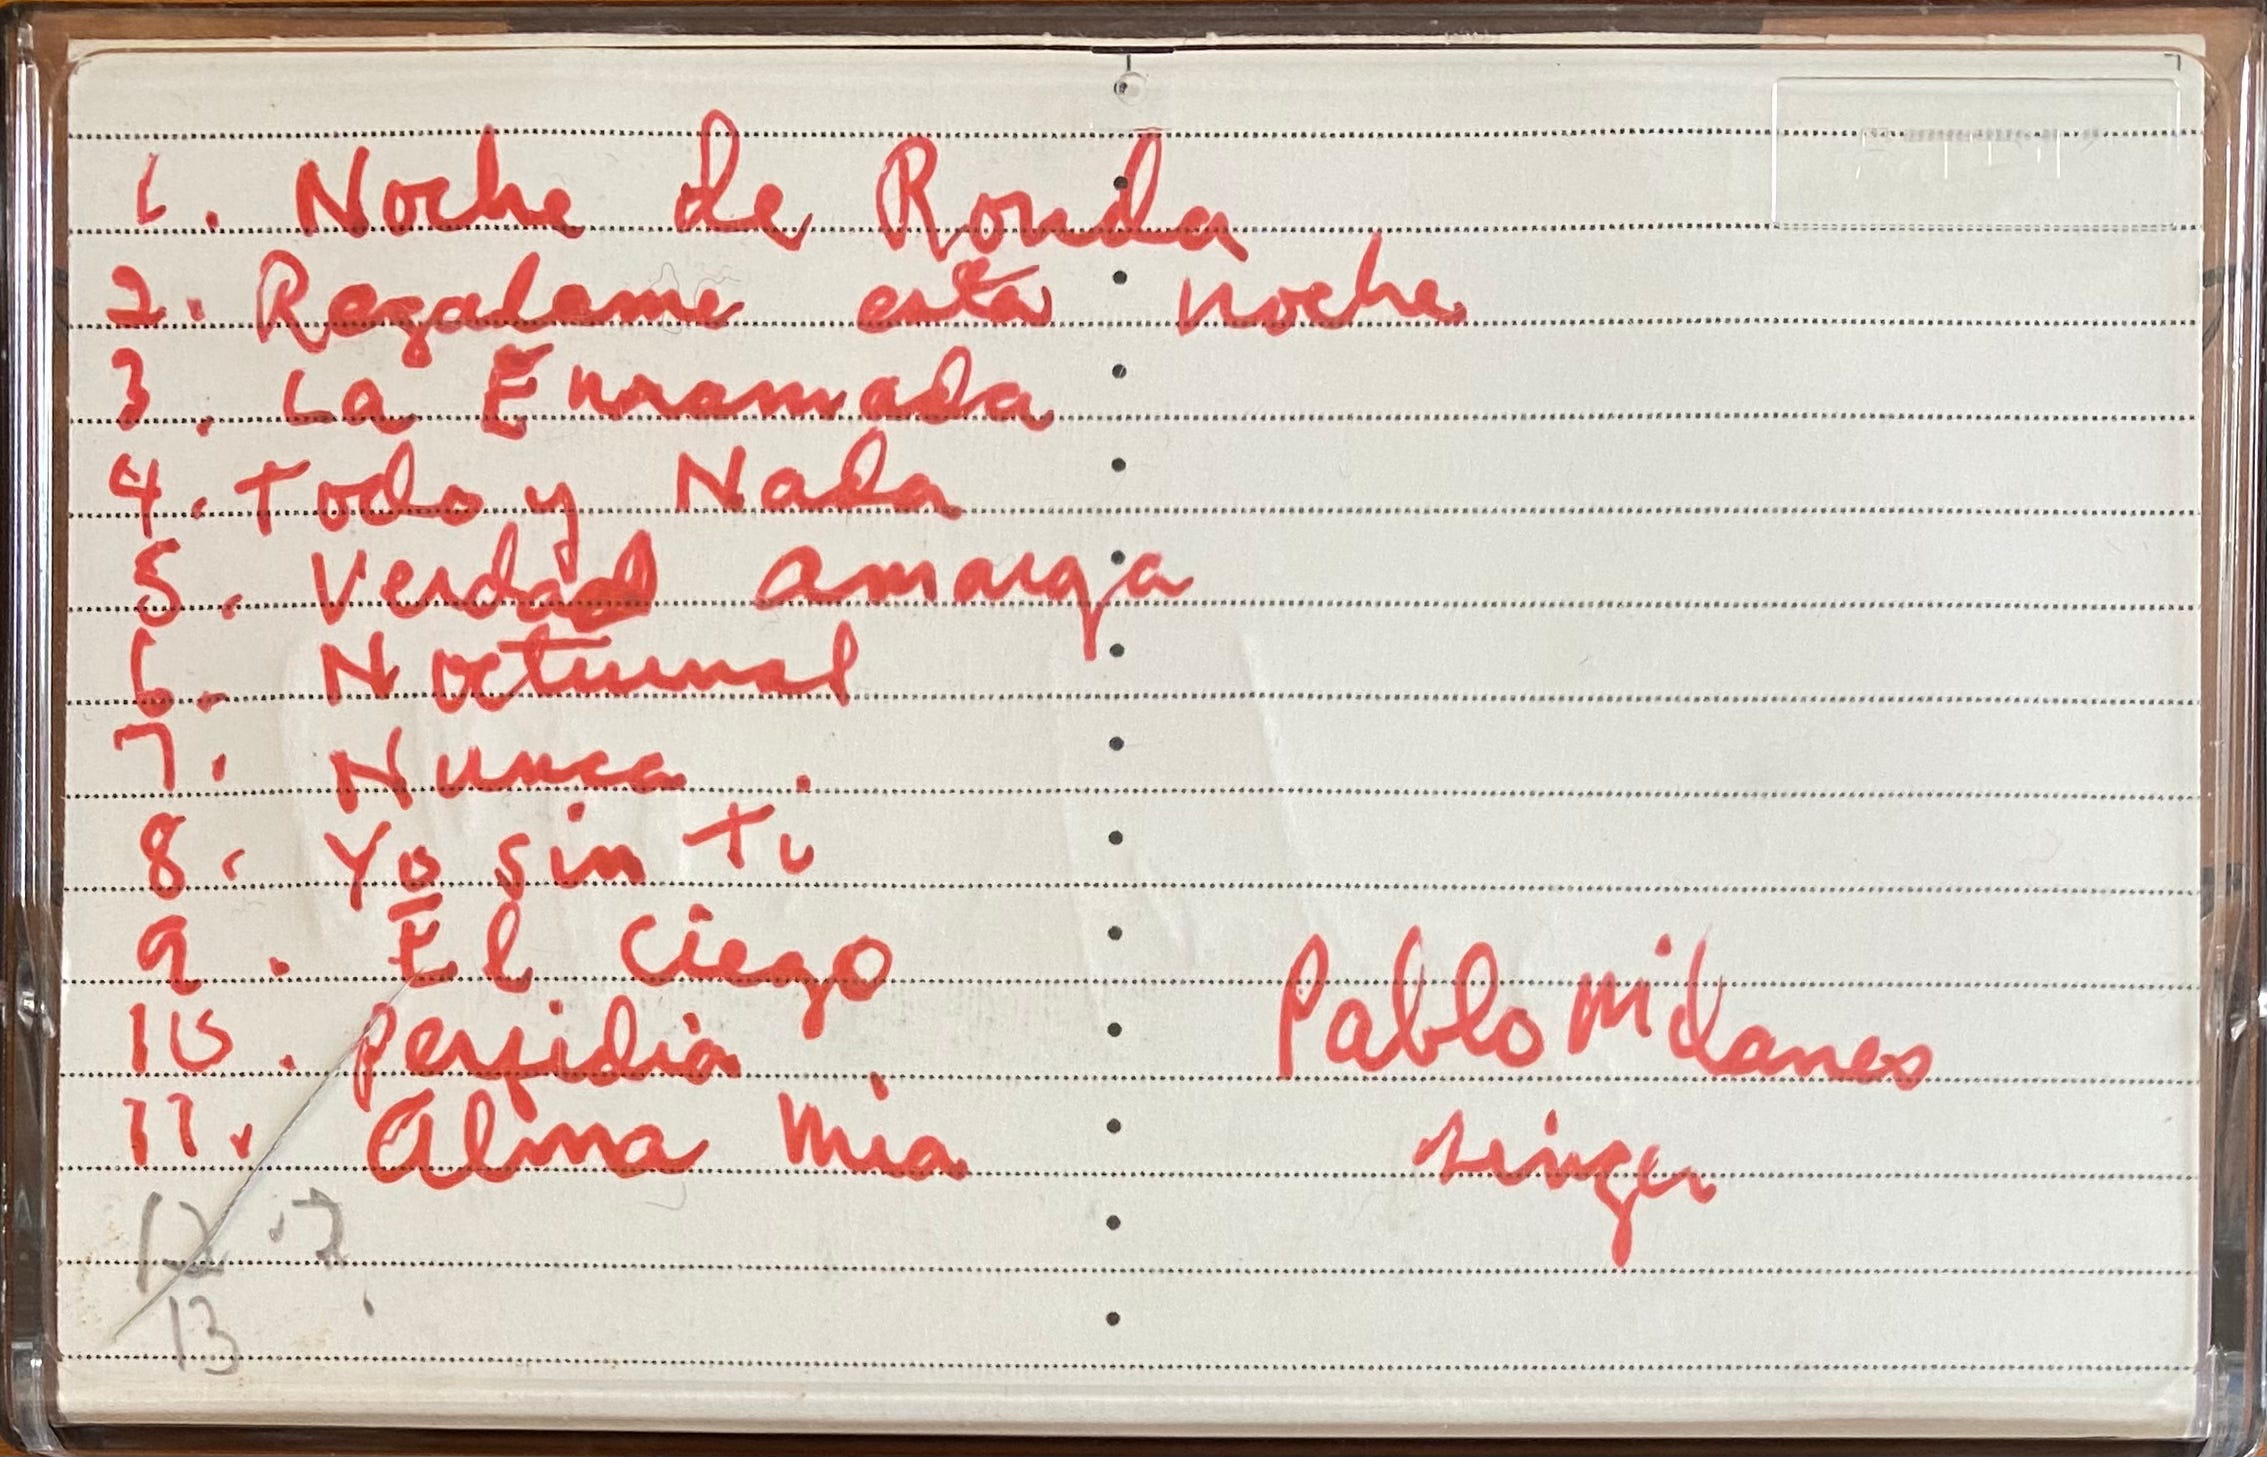 1. Noche de Ronda
2. Regalame esta noche
3. La Enramada
4. Todo y Nada
5. Verdad amarga
6. Nocturnal
7. Nunca.
8. Yo sin ti
9. El Ciego
10. perfidia
11. Alma Mia
12.?
13
Pablo Milanes
singer